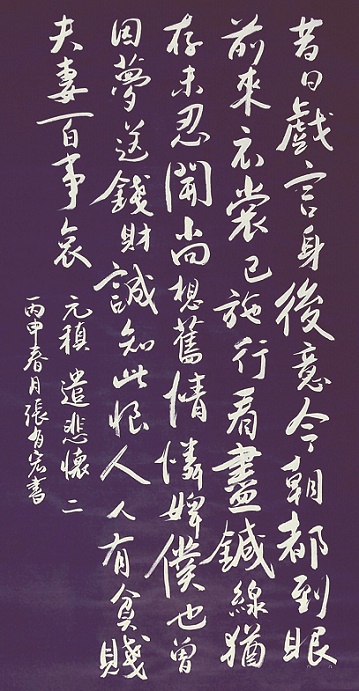 昔日戲言身後意今朝都到眼
前來衣裳已施行看盡鍼線猶
存未忍開尚想舊情憐婢僕也曾
因夢送錢財誠知此恨人人有貧賤
夫妻百事哀
元稹遣悲懷二
丙申春月張有宏書